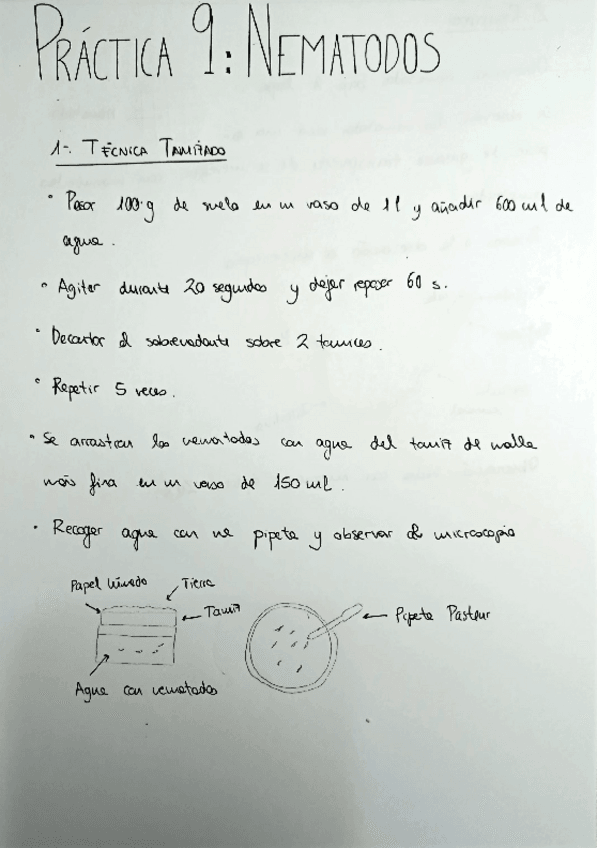 PRÁCTICA 9: NEMATODOS
1-. TÉCNICA TAMIZADO
• Pesar 100 g de suelo en un vaso de 1 l y añadir 600 ml de
agua.
• Agitar durante 20 segundos y dejar reposar 60 s.
• Decantar el sobrenadante sobre 2 tamices.
• Repetir 5 veces.
• Se arrastran los nematodos con agua del tamiz de malla
más fina en un vaso de 150 ml.
• Recoger agua con una pipeta y observar al microscopio
Papel Tierra
Tamiz
Pipeta Pasteur
Agua con nematodos